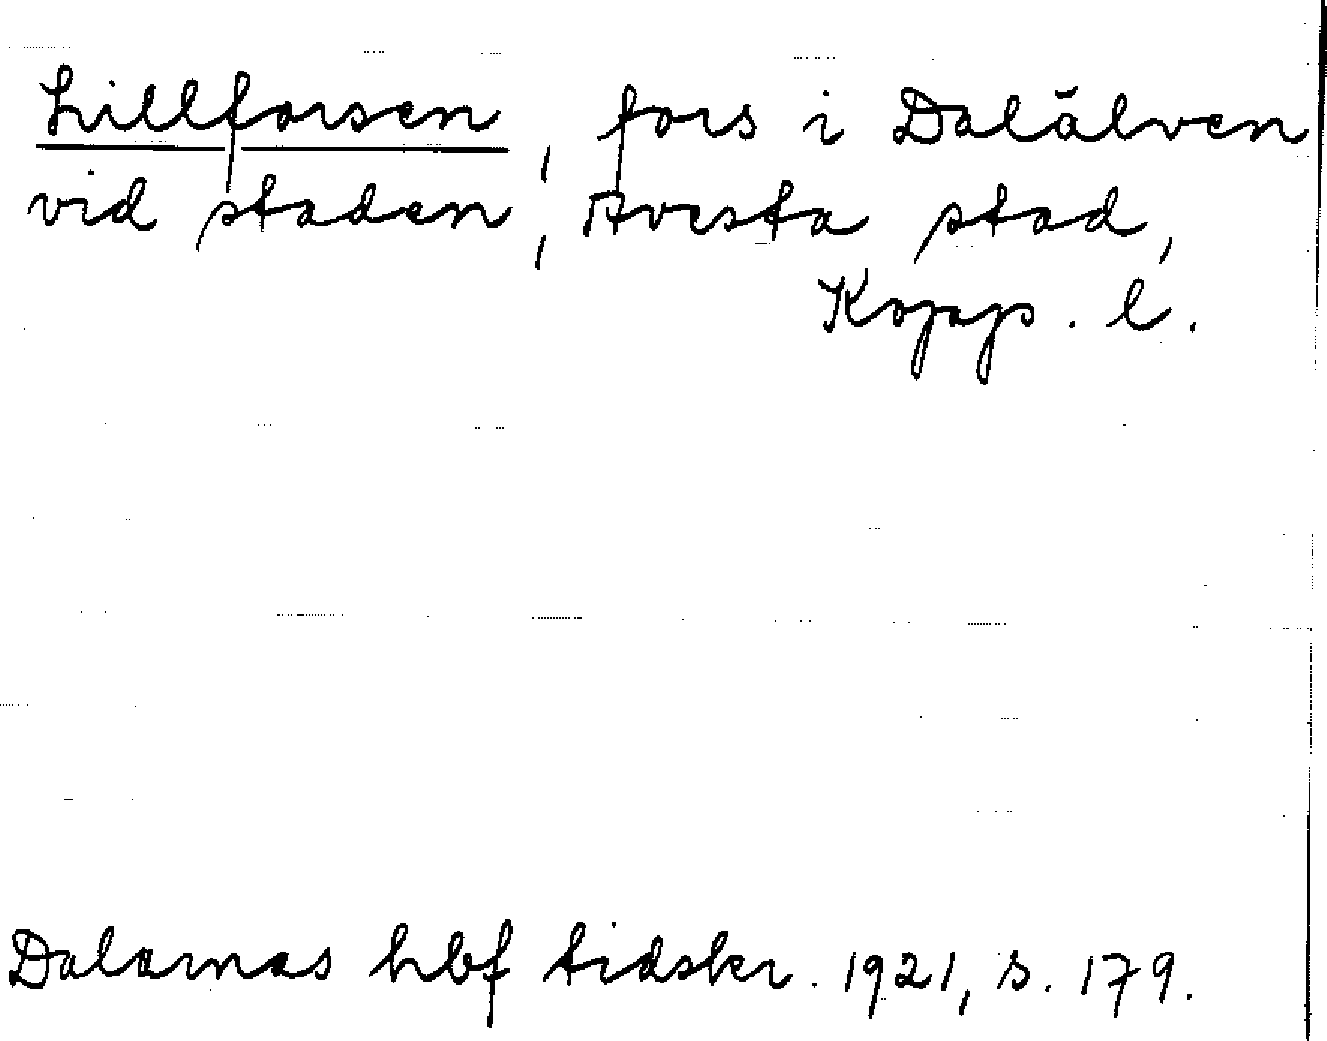 Lillforsen, fors i Dalälven
vid staden, Avesta stad,
Kopp. l.
Dalarnas hbf tidskr. 1921, s. 179.